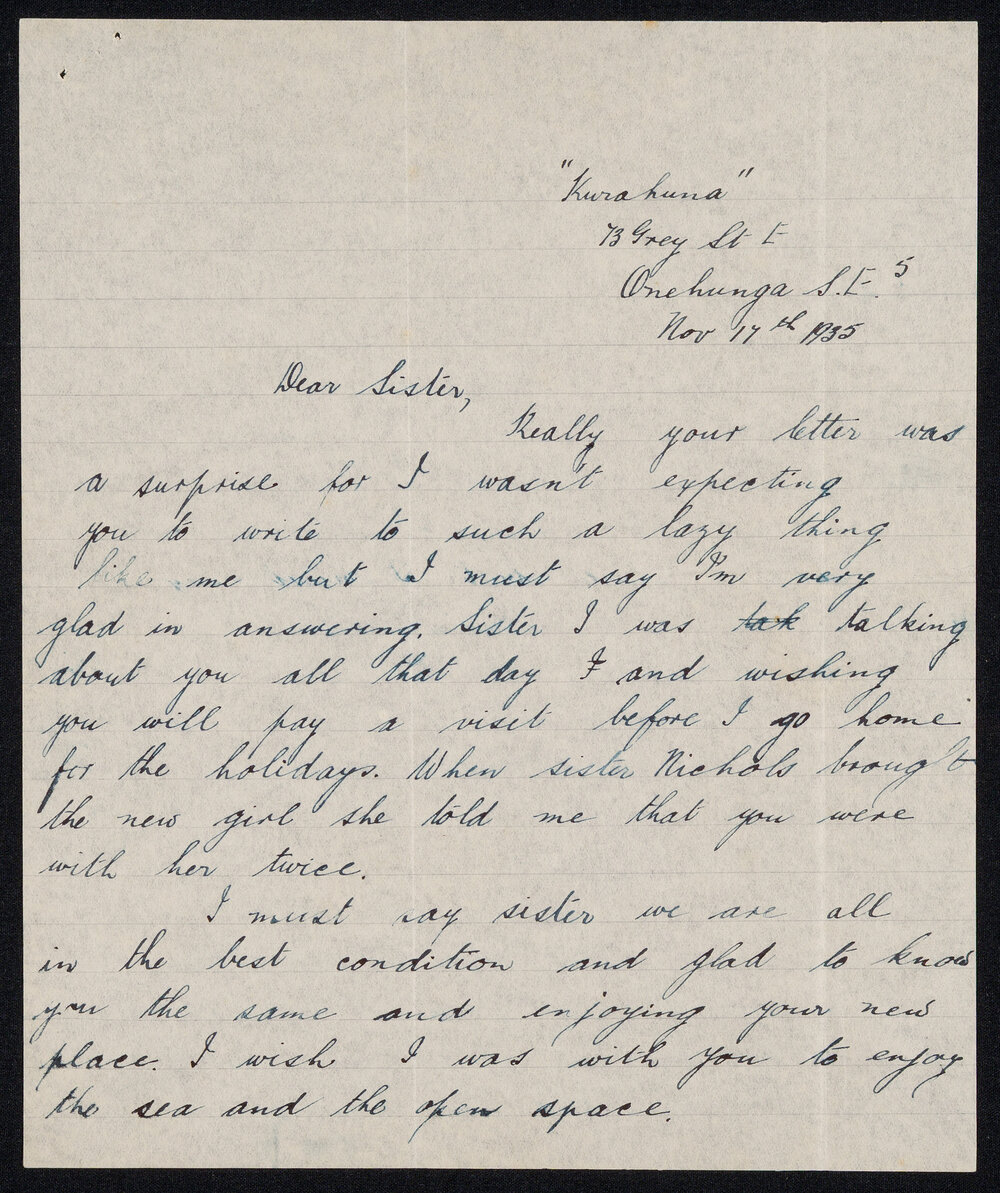 "Kurahuna"
73 Grey St E
Onehunga S.E.5
Nov 17th 1935
Dear Sister,
Really your letter was
a surprise for I wasn't expecting
you to write to such a lazy thing
like me but I must say I'm very
glad in answering. Sister I was tak talking
about you all that day I and wishing
you will pay a visit before I go home
for the holidays. When sister Nichols brought
the new girl she told me that you were
with her twice.
I must say sister we are all
in the best condition and glad to know
you the same and enjoying your new
place. I wish I was with you to enjoy
the sea and the open space.